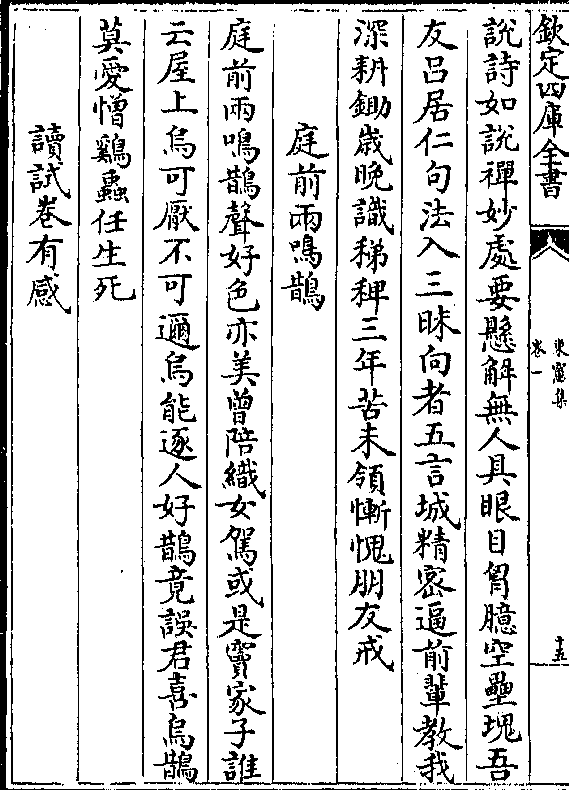 欽定四庫全書
東窻集
卷一
十五
說詩如說禪妙處要懸解無人具眼目胷臆空壘塊吾
友呂居仁句法入三昧向者五言城精密逼前輩教我
深耕鋤歳晚識稊稗三年苦未領慚愧朋友戒
庭前兩鳴鵲
庭前兩鳴鵲聲好色亦美曾陪織女駕或是竇家子誰
云屋上烏可厭不可邇烏能逐人好鵲竟誤君喜烏鵲
莫愛憎鷄蟲任生死
讀試卷有感